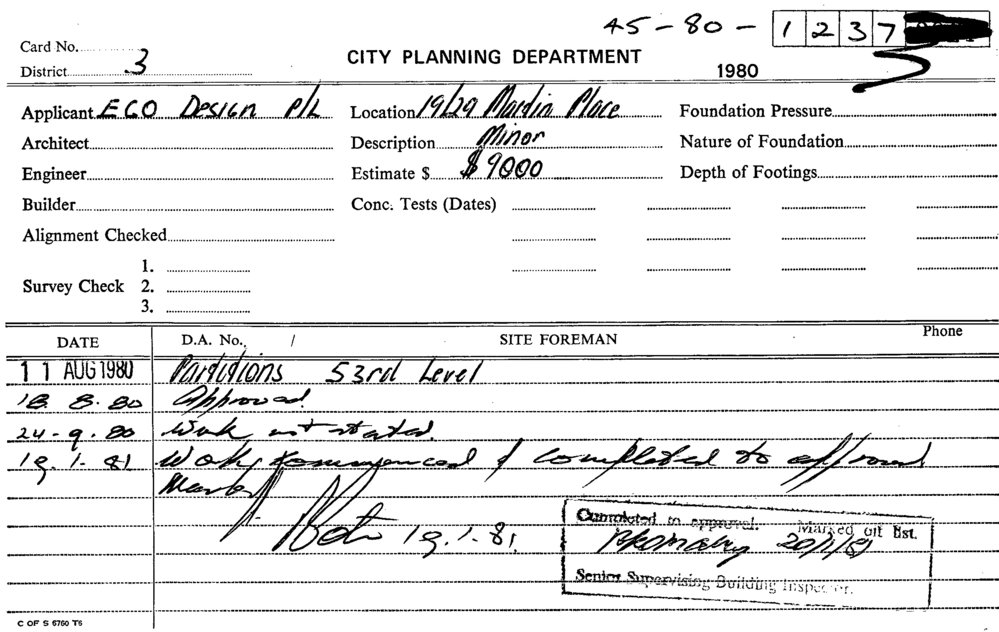 45-80-1237
Card No.
District 3
CITY PLANNING DEPARTMENT
1980
Applicant EGO Design P/L
Location 19/29 Martin Place
Foundation Pressure
Architect
Description Minor
Nature of Foundation
Engineer
Estimate $ $9000
Depth of Footings
Builder
Conc. Tests (Dates)
Alignment Checked
Survey Check
1.
2.
3.
DATE D.A. No. / SITE FOREMAN Phone
11 AUG 1980 Partitions 53rd Level
18.8.80 Approved.
24-9-80 Work not started.
19.1-81 Work commenced & completed to approved
19.1.81.
Completed to approval. Marked off list.
20/1/81
Senior Supervising Building Inspector.
C OF S 6760 T6